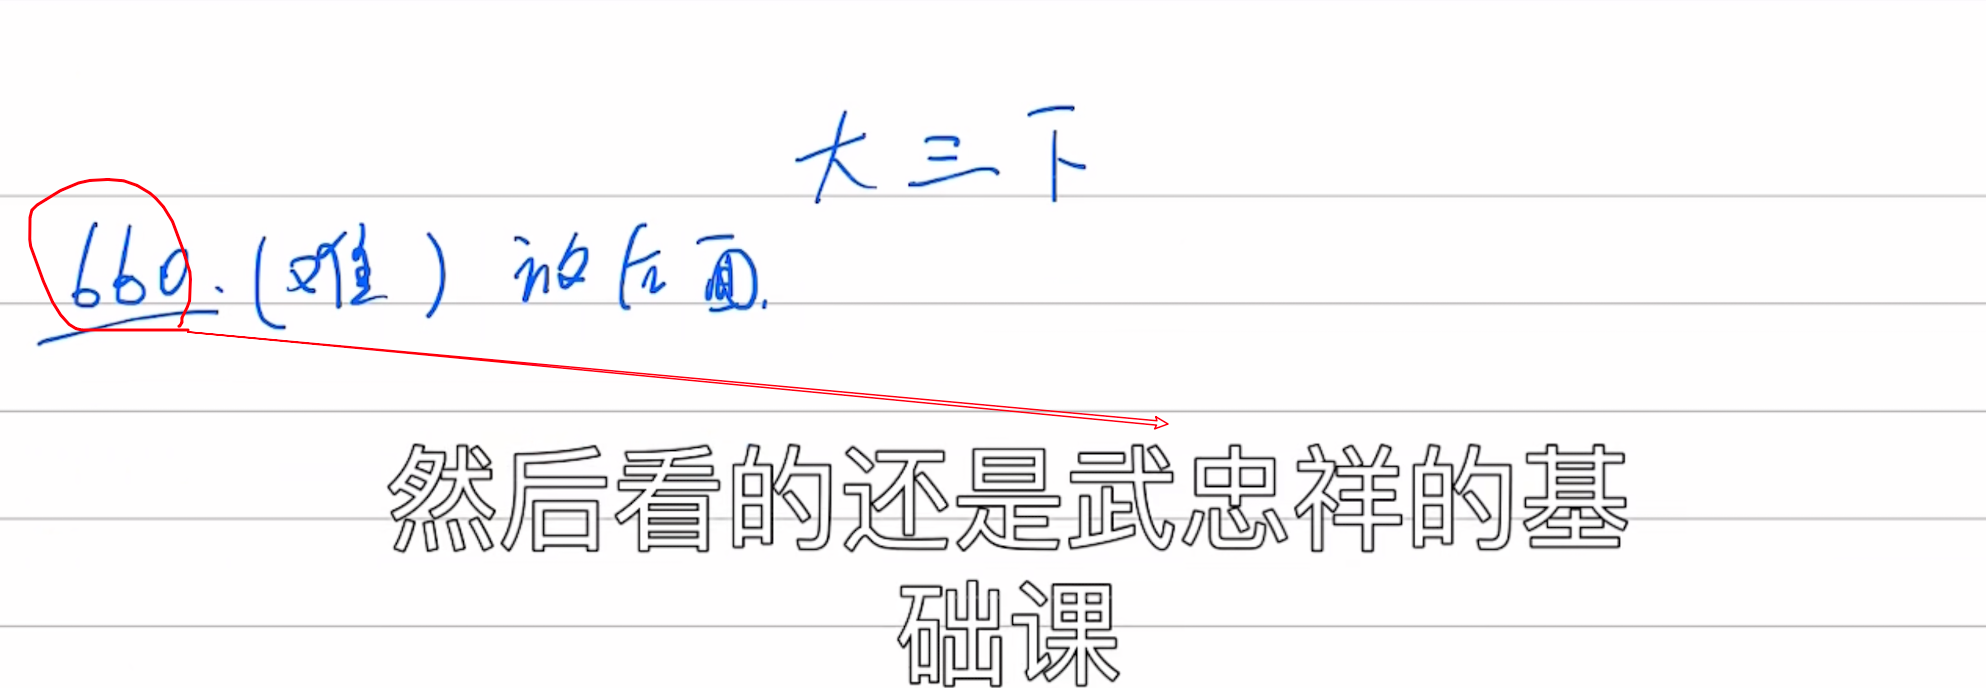 大三下
660.(难)放后面.
然后看的还是武忠祥的基
础课